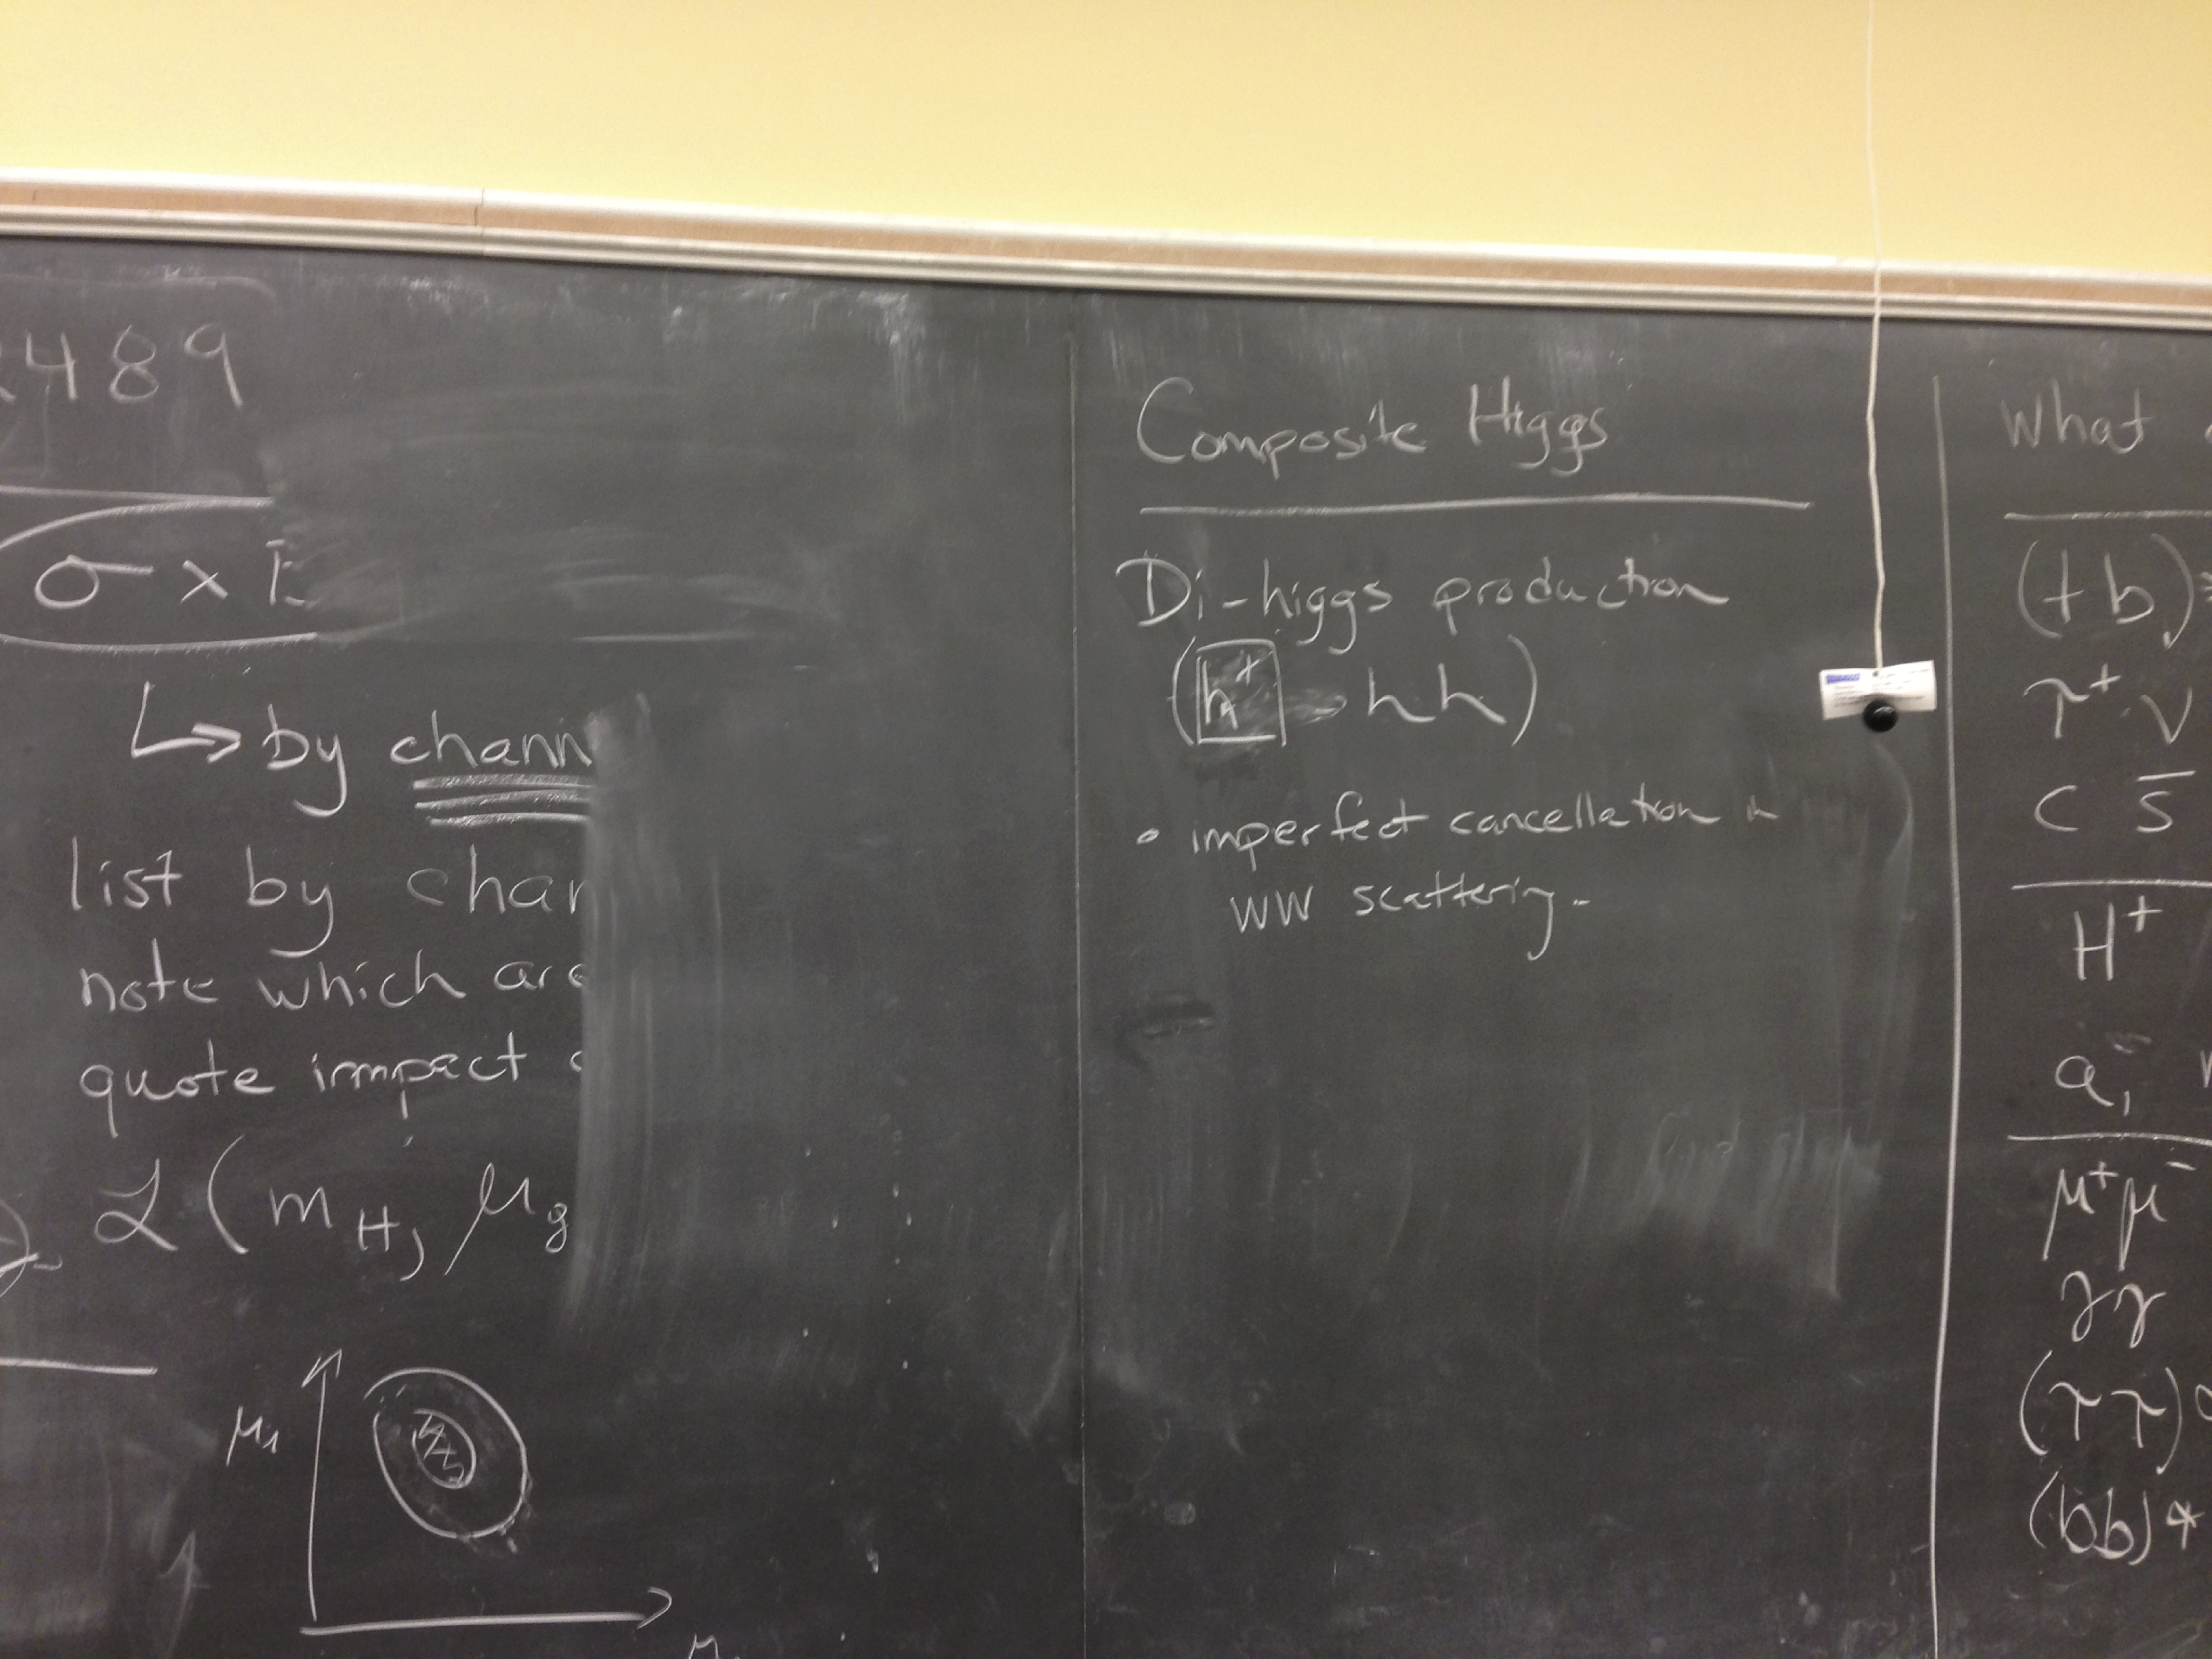 489
σ ×
↳ by chann
list by char
note which are
quote impact
ℒ ( m_H, μ_g
μ_1
μ
Composite Higgs
Di-higgs production
( h hh )
• imperfect cancellation in
WW scattering.
What
(t b)
τ⁺ ν
c s̄
H⁺
a₁
μ⁺μ⁻
γγ
(ττ)
(bb)*